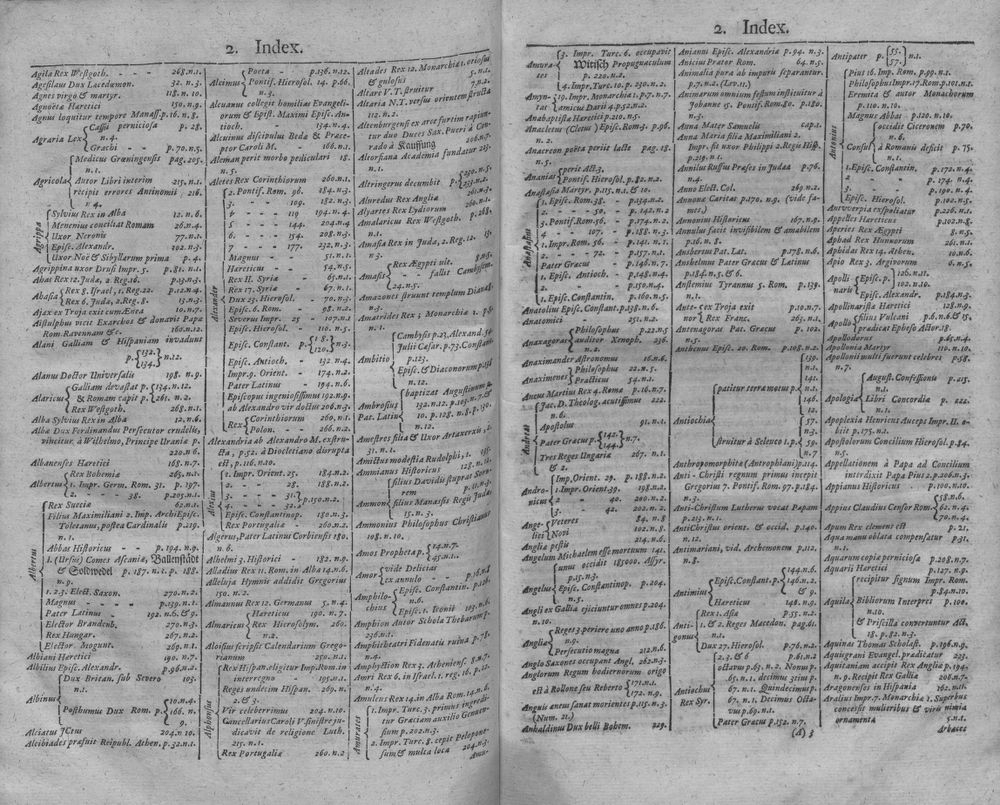 2. Index.
Agila Rex Westgoth. - - - 268.n.1.
Agesilaus Dux Lacedæmon. 32. n.5.
Agnes virgo & martyr. 118. n.10.
Agnoëtæ Hæretici 150. n.9.
Agnus loquitur tempore Manass. p.16. n.8.
Agraria Lex
Cassii perniciosa p. 28.
n.4.
Gracchi - - p.70. n.5.
Agricola
Medicus Grœningensis pag.205.
n.1.
Autor Libri interim 215. n.1.
recipit errores Antinomii 216.
n.1.
Agrippa
Sylvius Rex in Alba 12. n.6.
Menenius conciliat Romam 26.n.4.
Uxor Neronis 77. n.1.
Episc. Alexandr. 102. n.3.
Uxor Noë & Sibyllarum prima p. 4.
Agrippina uxor Drusi Impr. 5. p.81. n.1.
Ahas Rex 12. Juda, 2. Reg.16. p.13.n.5.
Ahasia
Rex 8. Israel, 1. Reg.22. p.12.n.4.
Rex 6. Juda, 2. Reg.8. 13.n.3.
Ajax ex Troja exit cum Ænea 10.n.7.
Aistulphus vicit Exarchos & donavit Papæ
Rom. Ravennam &c. 160.n.12.
Alani Galliam & Hispaniam invadunt
p. 132. 134. n.12.
Alanus Doctor Universalis 198. n.9.
Alaricus
Galliam devastat p. 134.n.12.
& Romam capit p. 261. n.2.
Rex Westgoth. 268.n.1.
Alba Sylvius Rex in Alba 12. n.6.
Albæ Dux Ferdinandus Persecutor crudelis,
vincitur, à Wilhelmo, Principe Urania p.
220.n.6.
Albanenses Hæretici 168.n.7.
Albertus
Rex Bohemia 265. n.1.
1. Impr. Germ. Rom. 31. p.197.
2. - - - 38. p.205.n.1.
Albertus
Rex Sueciæ 62.n.1.
Filius Maximiliani 2. Imp. ArchiEpisc.
Toletanus, postea Cardinalis p.219.
n.1.
Abbas Historicus - - p.194. n.9.
1. (Ursus) Comes Ascaniæ, Ballenstädt
& Soltwedel p. 187. n.1. p. 188.
n.9.
1. 2.3. Elect. Saxon. 270.n.2.
Magnus - - - p.139.n.1.
Pater Latinus 192. n.6. & 9.
Elector Brandenb. 270. n.3.
Rex Hungar. 267. n.2.
Elector Mogunt. 269. n.1.
Albiani Hæretici 190. n.7.
Albilius Episc. Alexandr. p.96.n.1.
Albinus
Dux Britan. sub Severo 103.
n.1.
Posthumus Dux Rom. 10.n.4. p. 166. n. 9.
Alciatus JCtus 204. n.10.
Alcibiades præfuit Reipubl. Athen. p.32.n.1.
Alcimus
Poeta - p.136.n.12.
Pontif. Hierosol. 14. p.66.
n.5.
Alcuinus collegit homilias Evangeli-
orum & Epist. Maximi Episc. An-
tioch. 134. n.4.
Alcuinus discipulus Bedæ & Præce-
ptor Caroli M. 166.n.1.
Aleman perit morbo pediculari 18.
n.5.
Aletes Rex Corinthiorum 260.n.1.
Alexander
2. Pontif. Rom. 96. 184.n.3.
3. - - 109. 182.n.3.
4 - - 119 194.n.4.
5 - - 144. 204.n.4
6. - - 154. 208.n.3.
7 - - 177. 232.n.3.
Magnus - - 51. n.1.
Hæreticus - - 54.n.5.
Rex II. Syriæ 65.n.1.
Rex 17. Syriæ 67.n.1.
Dux 25. Hierosol. 70.n.3.
Episc. 6. Rom. 98.n.2.
Severus Impr. 25 107.n.2
Episc. Hierosol. 110. n.5.
Episc. Constant. p. 118. 120. n.3.
Episc. Antioch. - - 132. n.4.
Impr.9. Orient. - 174.n.2.
Pater Latinus - 194.n.6.
Episcopus ingeniosissimus 192.n.9
ab Alexandro vir doctus 206.n.3.
Rex Corinthiorum 260.n.1.
Polon. 266.n.2.
Alexandria ab Alexandro M. exstru-
cta, p.52. à Diocletiano disrupta
est, p.116. n.10.
Alexius
1. Impr. Orient. 25. 184.n.2.
2. - - 28. 188.n.2.
3. - - 31. p.150.n.2.
Episc. Constantinop. 180.n.3.
Rex Portugaliæ - 260.n.2.
Algerus, Pater Latinus Corbiensis 180.
n.6.
Alhelmi 3. Historici - 182. n.9.
Alladius Rex 11. Rom. in Alba 14.n.6.
Alleluja Hymnis addidit Gregorius
150.n.1.
Almannus Rex 12. Germanus 5. n.4.
Almaricus
Hæreticus 190. n.7.
Rex Hierosolym. 260.
n.2.
Aloisius scripsit Calendarium Grego-
rianum 250.n.1.
Alphonsus
Rex Hispan. eligitur Imp. Rom. in
interregno - 195.n.1.
Reges undecim Hispan. 269.n.
2. & 3.
Vir celeberrimus 204. n.10.
Cancellarius Caroli V. sinistre ju-
dicavit de religione Luth.
215. n.1.
Rex Portugaliæ - 260.n.2
Altades Rex 12. Monarchiæ 1. otiosus
& gulosus 5.n.1.
Altare V. T. struitur 7.n.1.
Altaria N.T. versus orientem structa
112. n.2.
Altenburgensi ex arce furtim rapiun-
tur duo Duces Sax. Pueri à Con-
rado à Kauffung 206.n.7.
Altorfiana Academia fundatur 215.
n.1.
Altringerus decumbit p. 230.n.2. 231.n.1.
Aluredus Rex Angliæ 261.n.3.
Alyartes Rex Lydiorum 260.n.1.
Amalaricus Rex Westgoth. p.268.
n.1.
Amasia Rex in Juda, 2. Reg. 12. 13.
n.5.
Amasis
Rex Ægypti ult. 8.n.5.
- - fallit Cambysem.
24.n.5.
Amazones struunt templum Dianæ 18.
n.3.
Amatrides Rex 5 Monarchiæ 1. p.8.
n.1.
Ambitio
Cambysis p.23. Alexand. 54
Julii Cæsar. p.73. Constant.
p.123.
Episc. & Diaconorum p.132
n.12.
Ambrosius
Pat. Latin
baptizat Augustinum p.
192.n.12. p.125.n.7. &
10. p.128. n.5. p.130.
Amestres filia & Uxor Artaxerxis, 2.
n.1.
Amicitus modestia Rudolphi, 1. 195
Ammianus Historicus 128. n.12.
Ammon
filius Davidis stuprat Soro-
rem 11.n.2.
filius Manassis Regis Judæ
15. n.3.
Ammonius Philosophus Christianus
108. n.10.
Amos Propheta p. 14.n.7. 45.n.1.
Amor
vide Deliciæ
ex annulo - p.16.n.1.
Amphilo-
chius
Episc. Constantin. p.
n.6.
Episc. 1. Iconii 125.n.6.
Amphion Autor Schola Thebarum p.
236.n.1.
Amphitheatri Fidenatis ruina p.78.
n.1.
Amphyction Rex 3. Atheniens. 8.n.7.
Amri Rex 6. in Israel. 1. reg. 16. p.12.
n.4.
Amulius Rex 14. in Alba Rom. 14.n.6.
Amurates
1. Impr. Turc. 3. primus ingredi-
tur Græciam auxilio Genuen-
sum p.202. n.3.
2. Impr. Turc. 8. cepit Peloponne-
sum & multa loca 204.n.3.
Amu-
2. Index.
Amura-
tes
3. Impr. Turc. 6. occupavit
Witisch Propugnaculum
p. 220. n.2.
4. Impr. Turc. 10. p.230. n.2.
Amyn-
tas
19. Impr. Monarchiæ 1. p.7. n.7.
amicus Darii 4. p.52.n.2.
Anabaptistæ Hæretici p.210. n.5.
Anacletus (Cletus) Episc. Rom. 4. p.96.
n.2.
Anacreon poëta periit lacte pag. 18.
n.5.
Ananias
perit Act.3.
Pontif. Hierosol. p.82.n.2.
Anastasia Martyr. p.115. n.1. & 10.
Anastasius
1. Episc. Rom. 38. - p.134.n.2.
2. - - 50. - p.142.n.2
3. Pontif. Rom. 56. p.174.n.5.
4. - 107. - p.188. n.3.
1. Impr. Rom. 56. - p.141.n.1.
2. - - 72. - p.157.n.1.
Pater Græcus - p.146.n.7.
1. Episc. Antioch. - p.148.n.4.
2. - - p.150.n.4.
1. Episc. Constantin. p.160. n.5.
Anatolius Episc. Constant. p.138.n.6.
Anatomici 251.n.2.
Anaxagoras
Philosophus p.22.n.5
auditor Xenoph. 236.
n.2.
Anaximander Astronomus 16.n.6.
Anaximenes
Philosophus 22 n.5.
Practicus 54. n.1.
Ancus Martius Rex 4. Romæ p.16.n.7.
Andreas
Jac. D. Theolog. acutissimus 222.
n.6.
Apostolus 91. n.1.
Pater Græcus p. 142. 144. n.7.
Tres Reges Ungariæ 267. n.1.
& 2.
Andro-
nicus
Imp. Orient. 29. p.188.n.2.
1. Impr. Orient. 39. 198.n.2
2 40. 200.n.2.
4 42. 202. n.2.
Ange-
li
Veteres 84.n.8
Novi 102.n.8
Angliæ pestis 214. n.7.
Angelum Michaelem esse mortuum 141.
Angelus
unus occidit 185000. Assyr.
p.15.n.3.
Episc. Constantinop. p.204.
n.5.
Angli ex Gallia ejiciuntur omnes p.204.
n.10.
Anglia
Reges 3. periere uno anno p.186.
n.9.
Persecutio magna 212.n.6.
Anglo Saxones occupant Angl. 262.n.3.
Anglorum Regum Bodbornensium origo
est à Rollone seu Reberto 171.n.1. 172. n.9.
Anguis æneus sanat morientes p.115. n.3.
(Num. 21.)
Anhaldinus Dux belli Bohem. 229.
Anianus Episc. Alexandriæ p.94. n.3.
Anicius Prætor Rom. 64. n.5.
Animalia pura ab impuris separantur.
p.7. n.2. (Lev. 11.)
Animarum omnium festum instituitur à
Johanne 15. Pontif. Rom. 80. p.180.
n.3.
Anna Mater Samuelis cap.1.
Anna Maria filia Maximiliani 2.
Impr. fit uxor Philippi 2. Regis Hisp.
p.219.n.1.
Annius Russus Præses in Judæa p.76.
n.1.
Anno Elect. Col. 269. n.2.
Annona Cara p.170. n.9. (vide fa-
mes.)
Annonius Historicus 167. n.9.
Annulus facit invisibilem & amabilem
p.16. n.8.
Ansbertus Pat. Lat. p.178. n.6.
Anshelmus Pater Græcus & Latinus
p.184. n.5. & 6.
Anstemius Tyrannus 5. Rom. p.139.
n.1.
Ante-
nor
ex Troja exit p.10.n.7.
Rex Franc. 263.n.1.
Antenagoras Pat. Græcus p.102.
n.5.
Antherus Episc. 20. Rom. p.108. n.2.
Antiochia
patitur terræmotus p. 139. 141. 146. 12. 204. n.1.
struitur à Seleuco 1. p. 59. n.1.
Anthropomorphitæ (Antrophiani) p.114.
Anti-Christi regnum primum incipit
Gregorius 7. Pontif. Rom. 97. p.184.
n.3.
Anti-Christum Lutherus vocat Papam
p.213. n.1.
AntiChristus orient. & occid. p.140.
n.1.
Antimariani, vid. Archemonem p.112.
n.8.
Antimius
Episc. Constant. p. 144.n.6. 146.n.2. & 9.
Hæreticus 148. n.9.
Anti-
gonus
Rex 1. Asiæ p.53. n.1.
1. & 2. Reges Macedon. pag.61.
n.1.
Dux 27. Hierosol. p.76. n.2.
Antiochus
Rex Syr.
2. 3. & 6. p.61.n.2.
octavus p.63. n.2. Nonus p.
65. n.1. decimus 3tius p.
67. n.1. Quindecimus p.
67. n.1. Decimus Octa-
vus p.69. n.1.
Pater Græcus p.152. n.7.
Antipater p. 55. 57. n.1.
Antonius
Pius 16. Imp. Rom. p.99. n.1.
Philosophus Impr. 17. Rom. p.101.n.1.
Eremita & autor Monachorum
p. 110. n.10.
Magnus Abbas - p.120. n.10.
Consul
occidit Ciceronem p. 70.
n.6.
à Romanis deficit p. 75.
n.1.
1. Episc. Constantin. p.172. n.4.
2 - - p. 174. n.4.
3. - p.190. n.4.
1. Episc. Hierosol. p.102.n.5.
Antverpia expoliatur p.226. n.1.
Appelles Hæreticus p.102.n.8.
Aperies Rex Ægypti 8. n.5.
Aphad Rex Hunnorum 261. n.1.
Aphidas Rex 14. Athen. 10. n.6.
Apio Rex 3. Argivorum 6. n.5.
Apolli-
naris
Episc. p. 126. n.10. 11.
Episc. Alexandr. p.184.n.3.
Apollinaristæ Hæretici 128. n.9.
Apollo
filius Vulcani p. 6. n.6. & 15.
prædicat Ephesi Actor. 18.
Apollodorus p.65.n.4.
Apollonia Martyr 110. n.10.
Apollonii multi fuerunt celebres p.58.
n.7.
Apologia
August. Confessionis p. 215.
n.1.
Libri Concordiæ p. 222.
n.1.
Apoplexia Henricus Auceps Impr. II. o-
biit p. 175. n.2.
Apostolorum Concilium Hierosol. p. 84.
n.5.
Appellationem à Papa ad Concilium
interdixit Papa Pius 2. p.206. n.3.
Appianus Historicus - p.100. n.10.
Appius Claudius Censor Rom 58.n.6. 62.n.4. 70.n.4.
Apum Rex clemens est p. 21.
Aqua manu oblata compensatur p.31.
n.1.
Aquarum copia perniciosa p.208.n.7.
Aquarii Hæretici p.127. n.9.
Aquila
recipitur signum Impr. Rom.
p. 84. n.10.
Bibliorum Interpres p.100.
n.10.
& Priscilla convertuntur Act.
18. p. 82. n.3.
Aquinas Thomas Scholast. p. 196. n.9.
Aquisgrani Evangel. prædicatur 223.
Aquitaniam accipit Rex Angliæ p.194.
n.9. in Recipit Rex Galliæ 206.n.7.
Aragonensis in Hispania 262. n.11.
Aralius Impr. 7. Monarchiæ 1. Superbus
concessit mulieribus & viris nimia
ornamenta 5.n.1.
(A) 3
Arbaces